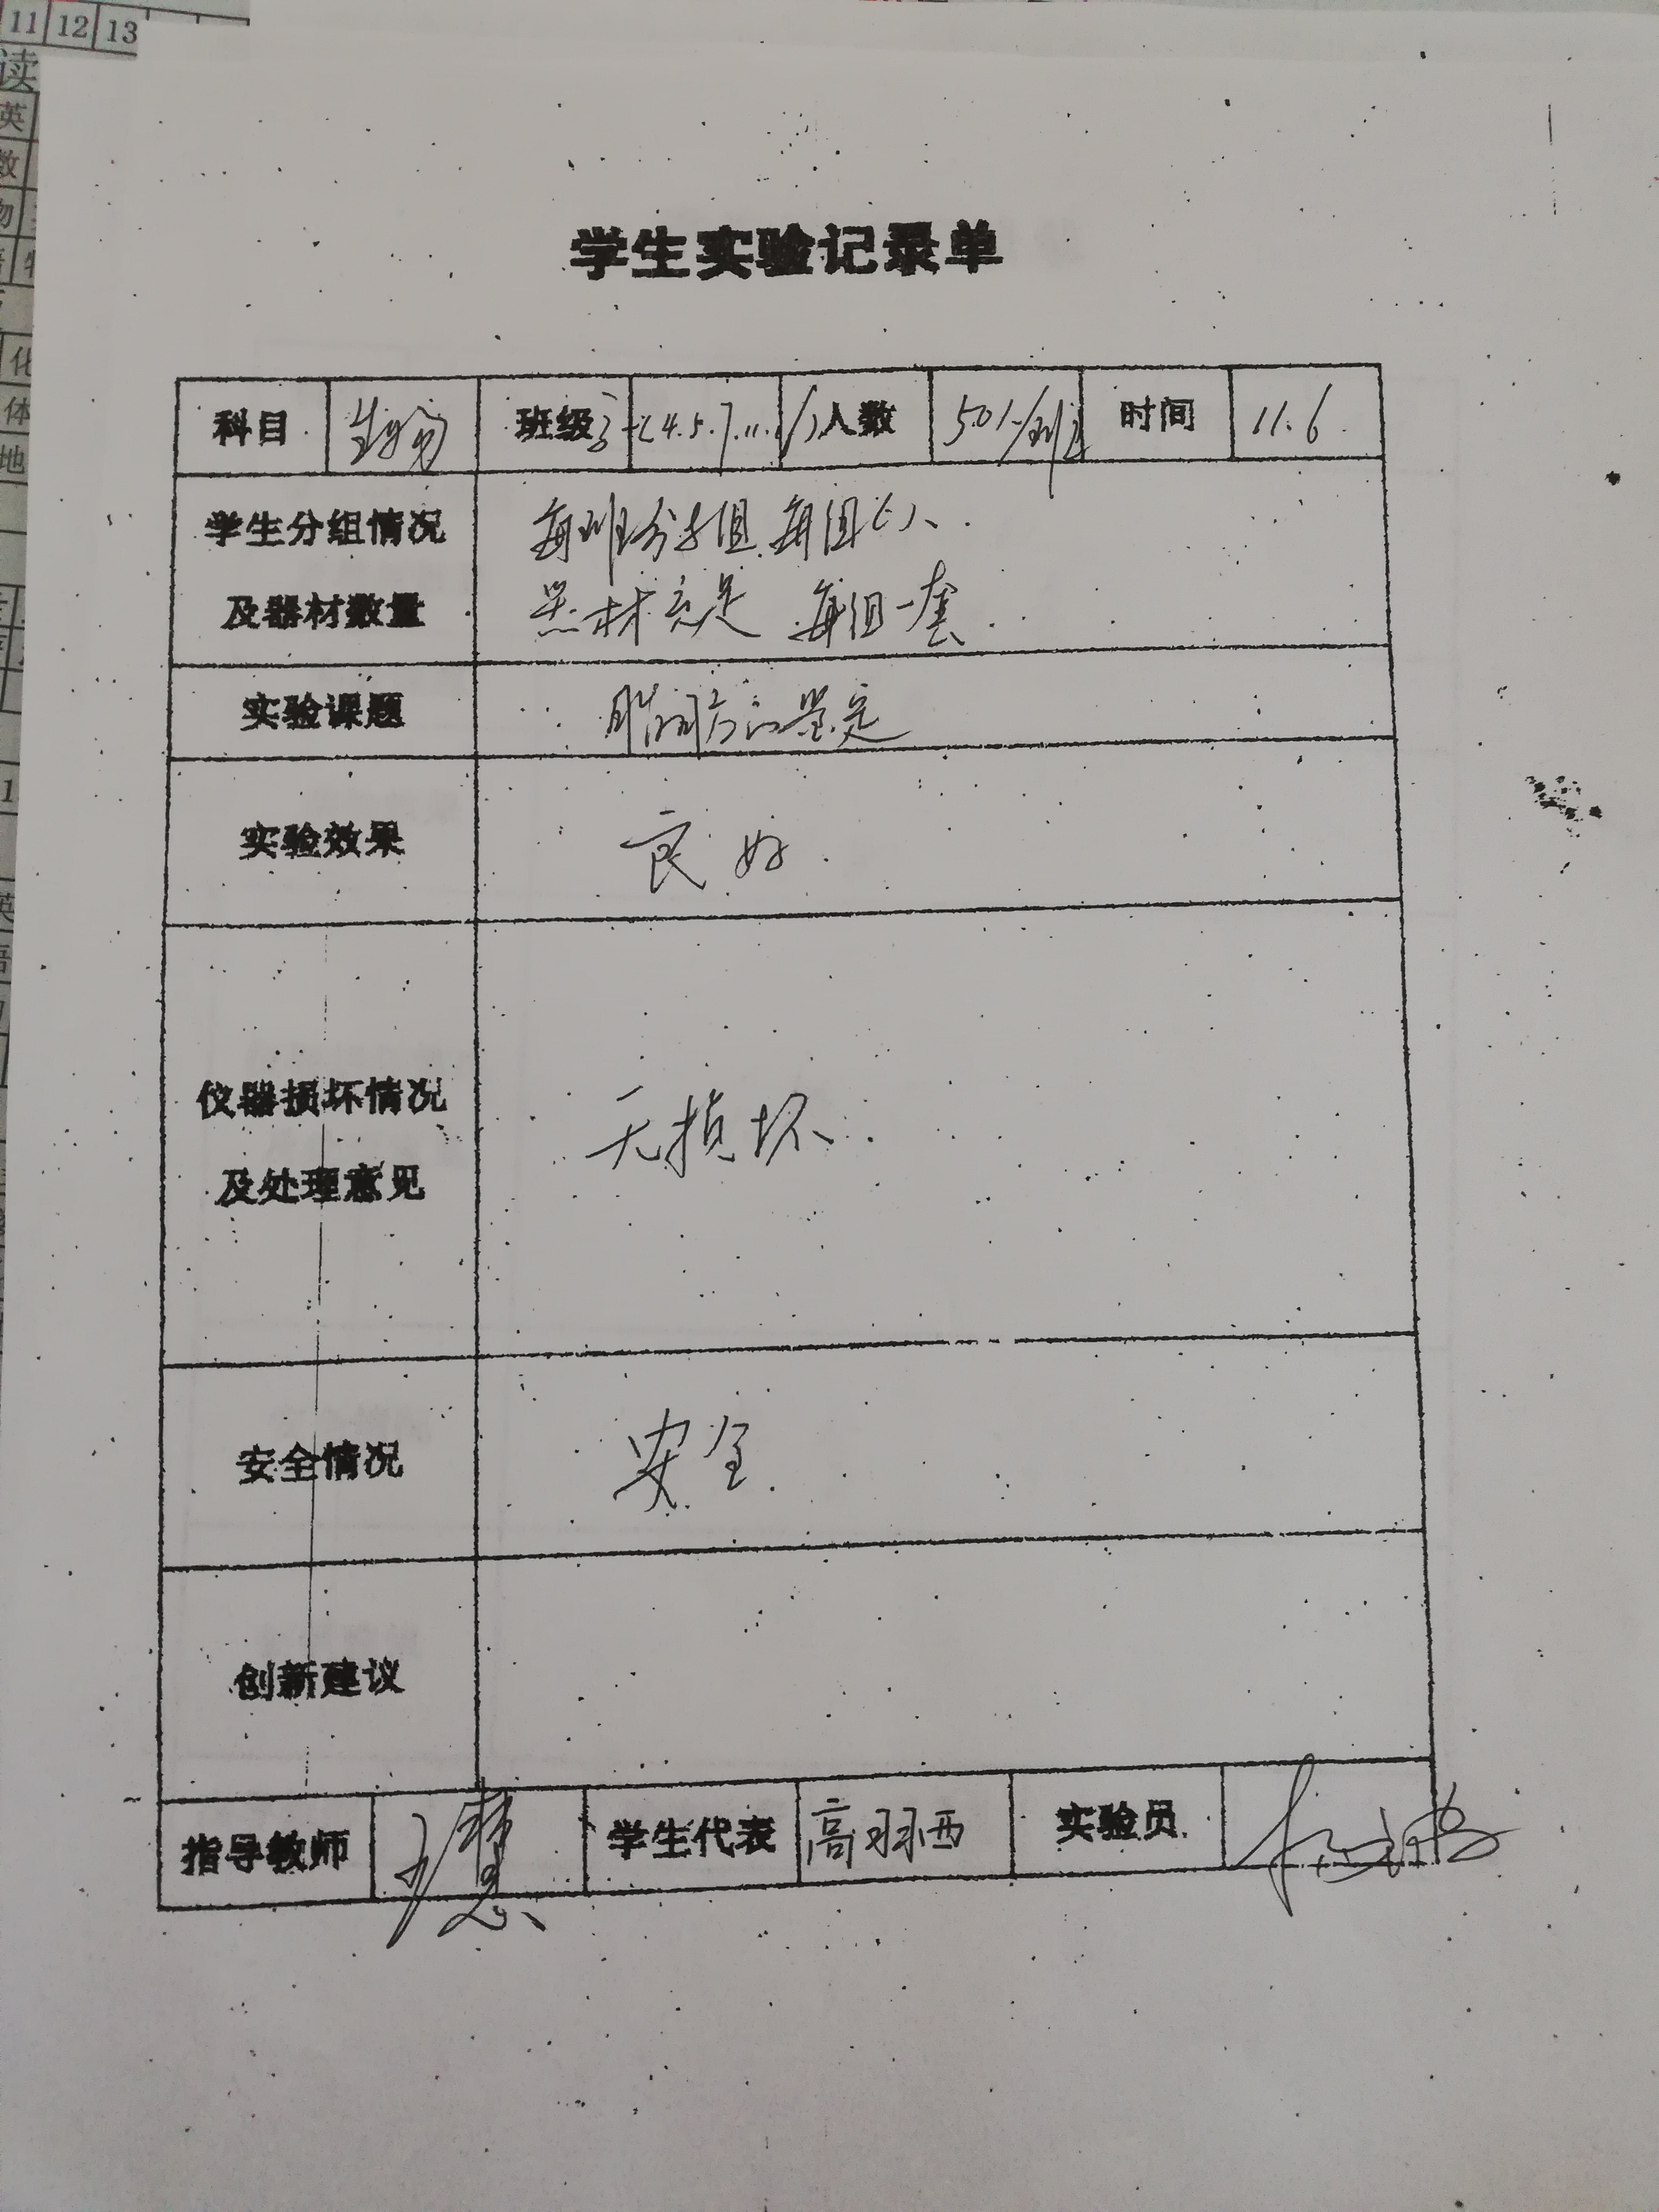 11 12 13
读
英
数
物
化
体
地
学生实验记录单
科目 生物 班级 高一(4.5.7.11. 人数 50人/班 时间 11.6.
学生分组情况 每班分 组 每组 人.
及器材数量 器材充足 每组一套.
实验课题 脂肪的鉴定
实验效果 良好.
仪器损坏情况 无损坏.
及处理意见
安全情况 安全.
创新建议
指导教师 学生代表 高羽西 实验员